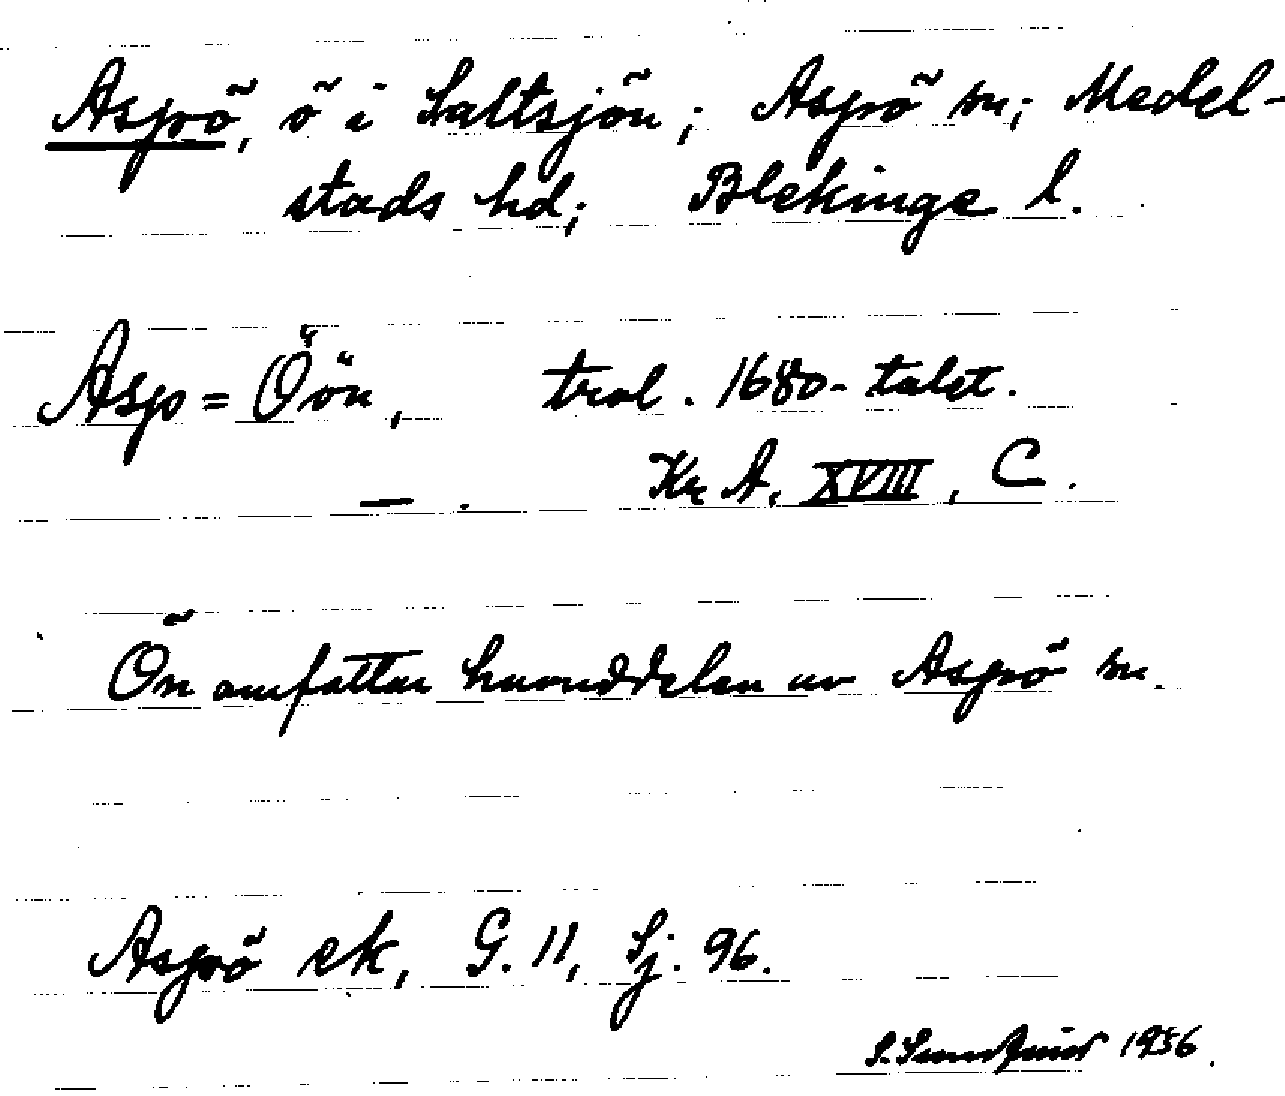 Aspö, ö i Saltsjön; Aspö sn; Medel-
stads hd; Blekinge l.
Aspo = Öön, trol. 1680-talet.
— . Kr A. XVIII, C.
Ön omfattar huvuddelen av Aspö sn.
Aspö ek, G. 11, Sj. 96.
1956.